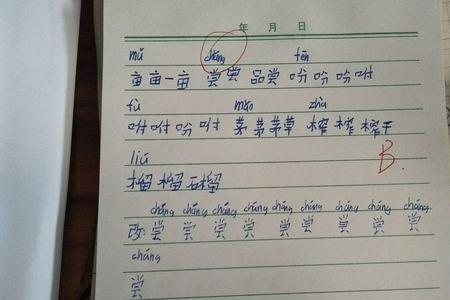 年 月 日
mǔ cháng fēn
亩 亩一亩 尝 尝 品尝 吩 吩 吩咐
fù máo zhà
咐 咐 吩咐 茅 茅 茅草 榨 榨 榨干
B.
liú
榴 榴 石榴
cháng cháng cháng cháng cháng cháng cháng cháng cháng
改: 尝 尝 尝 尝 尝 尝 尝 尝 尝
cháng
尝